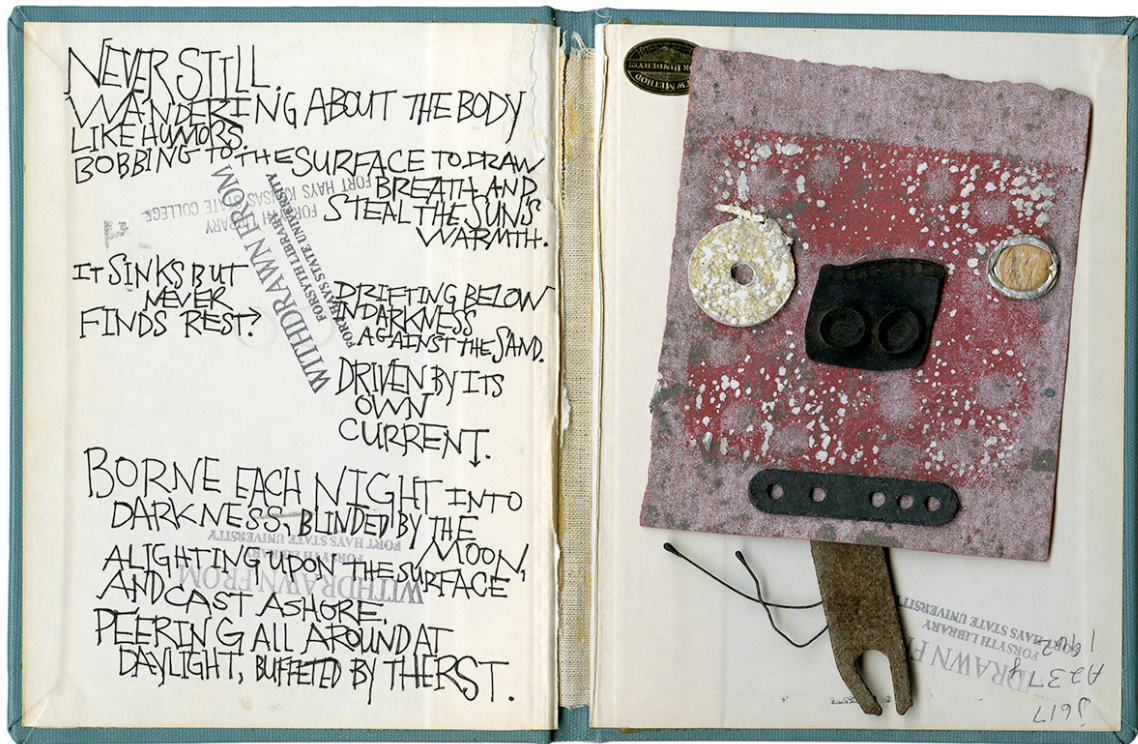 NEVER STILL.
WANDERING ABOUT THE BODY
LIKE HUMORS.
BOBBING TO THE SURFACE TO DRAW
BREATH AND
STEAL THE SUN'S
WARMTH.
IT SINKS BUT
NEVER
FINDS REST?
DRIFTING BELOW
IN DARKNESS
AGAINST THE SAND.
DRIVEN BY ITS
OWN
CURRENT.
BORNE EACH NIGHT INTO
DARKNESS, BLINDED BY THE
MOON,
ALIGHTING UPON THE SURFACE
AND CAST ASHORE.
PEERING ALL AROUND AT
DAYLIGHT, BUFFETED BY THERST.
WITHDRAWN FROM
FORSYTH LIBRARY
FORT HAYS STATE UNIVERSITY
FORT HAYS KANSAS STATE COLLEGE
WITHDRAWN FROM
FORSYTH LIBRARY
FORT HAYS STATE UNIVERSITY
METHOD
BINDERY
FORSYTH LIBRARY
HAYS STATE UNIVERSITY
j617
A2374